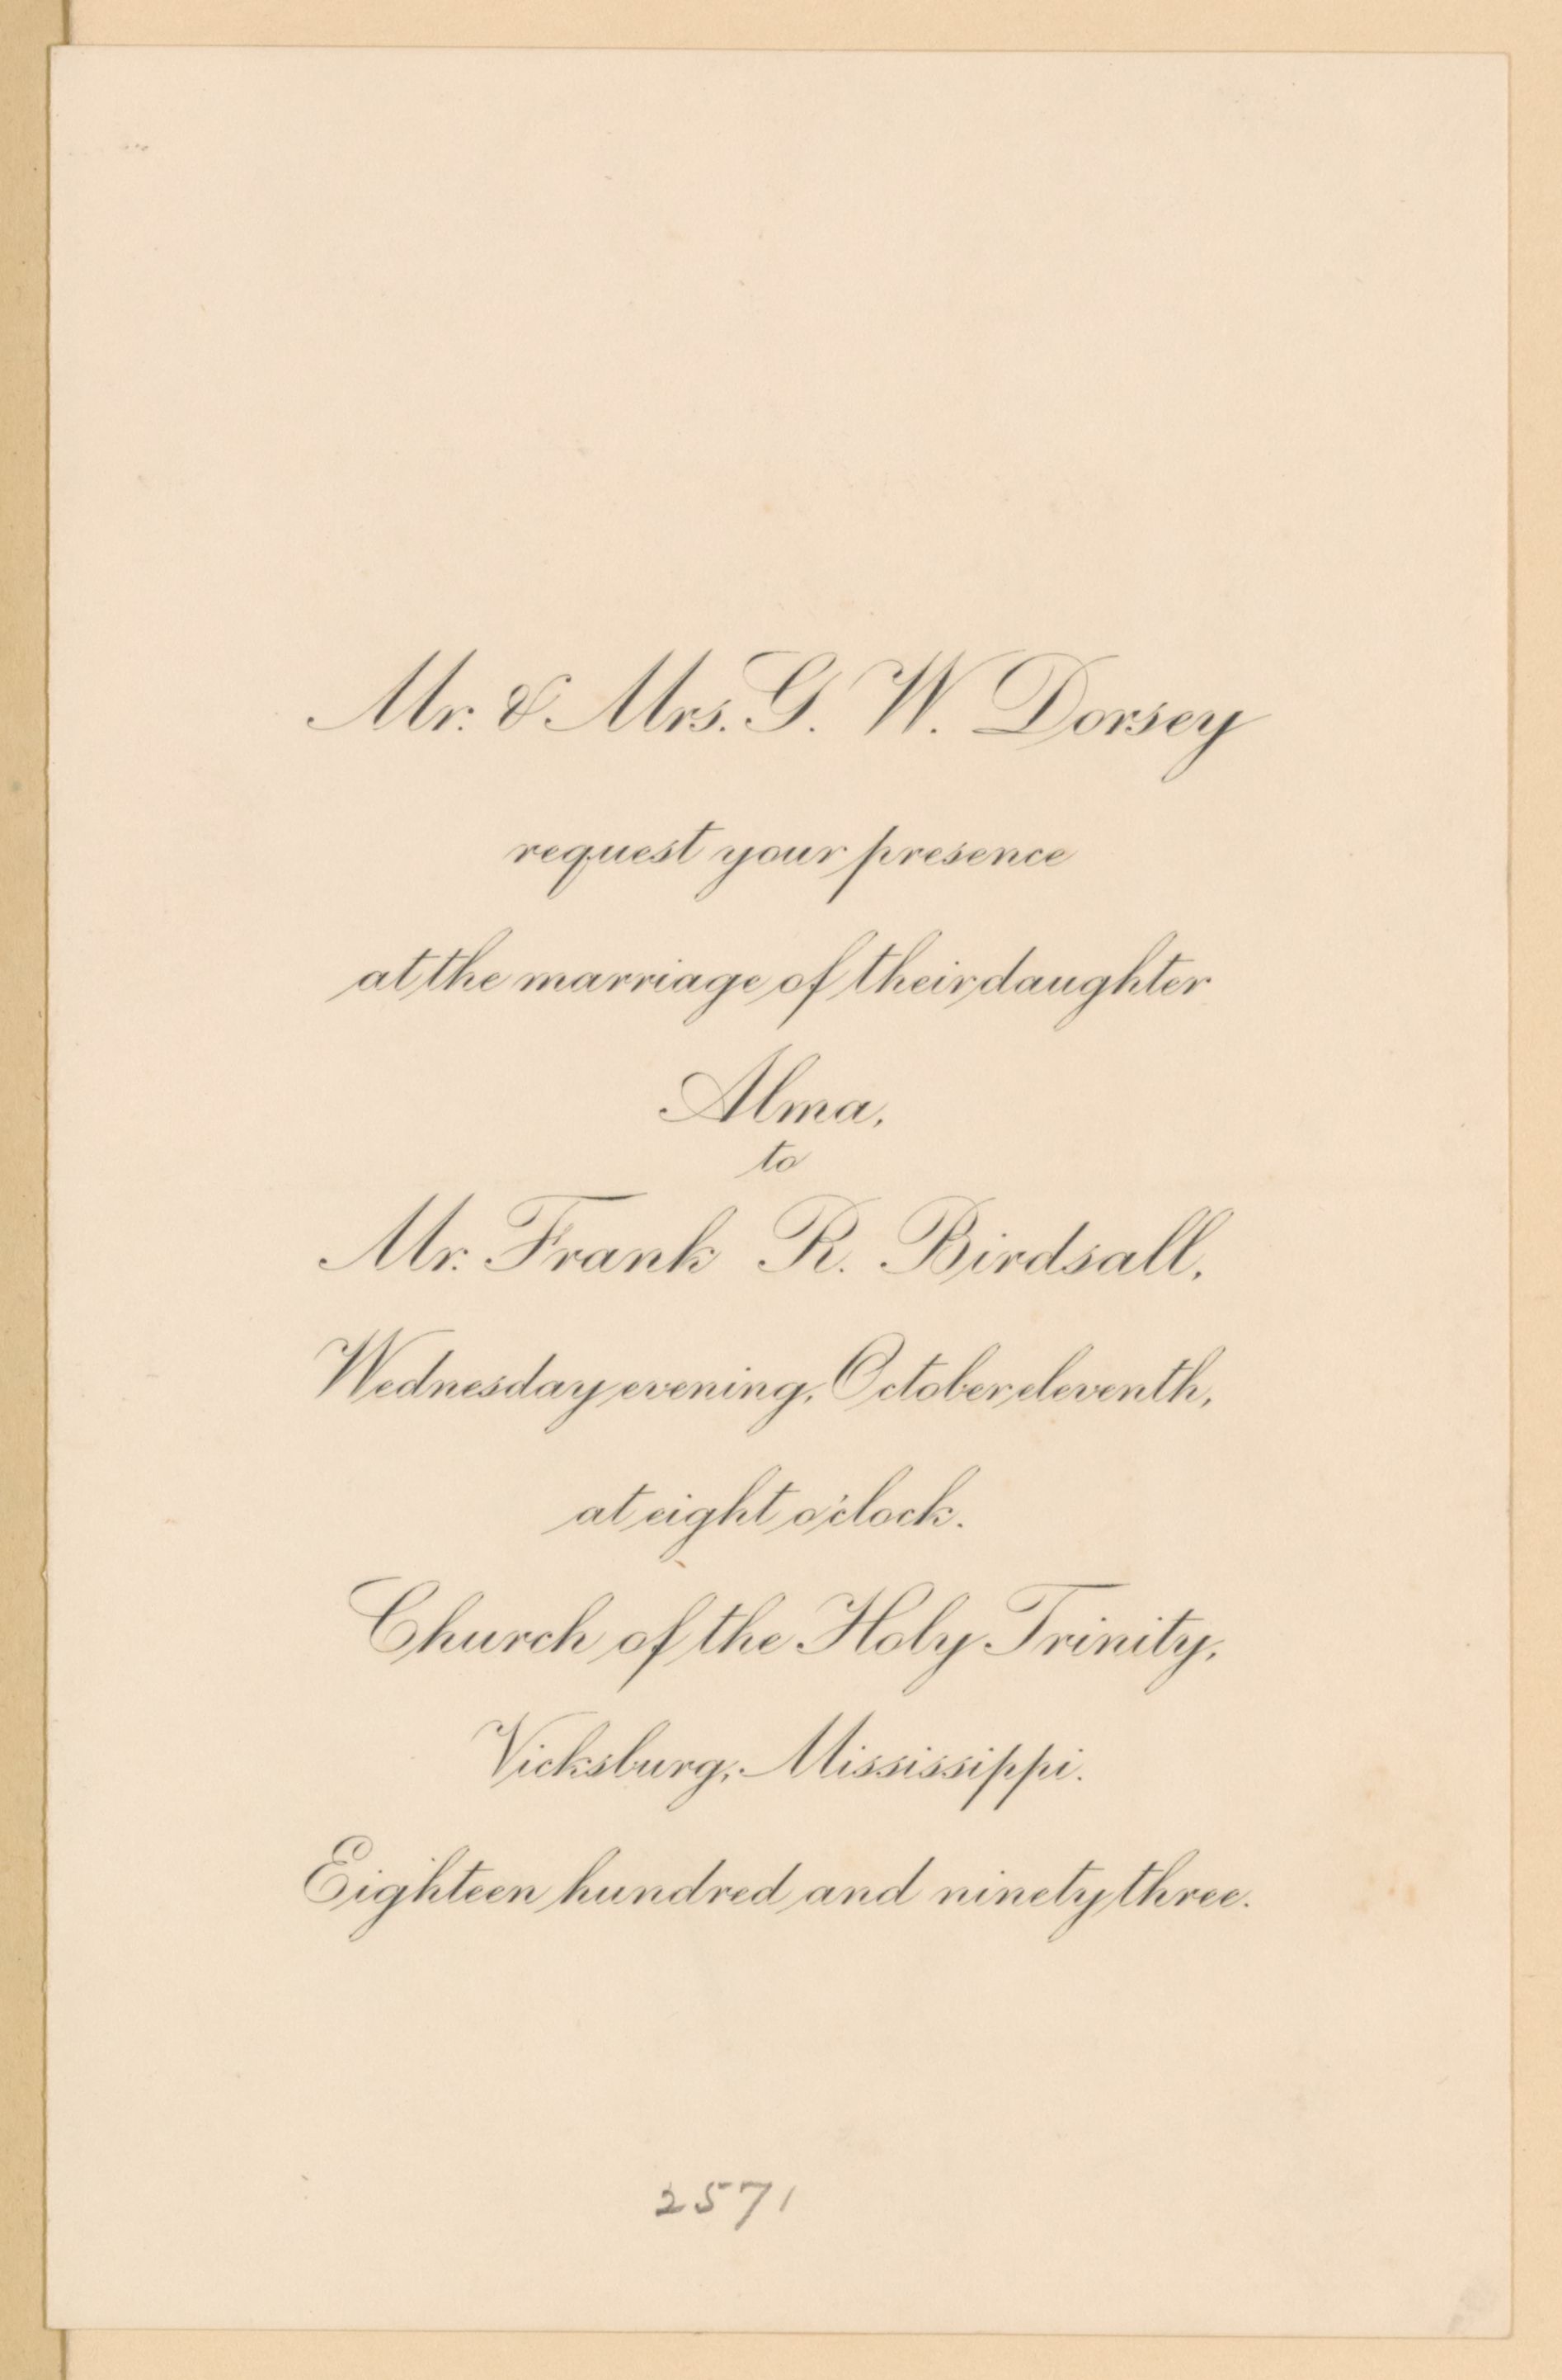 Mr. & Mrs. G. W. Dorsey
request your presence
at the marriage of their daughter
Alma,
to
Mr. Frank R. Birdsall,
Wednesday evening, October eleventh,
at eight o'clock.
Church of the Holy Trinity,
Vicksburg, Mississippi.
Eighteen hundred and ninety three.
2571